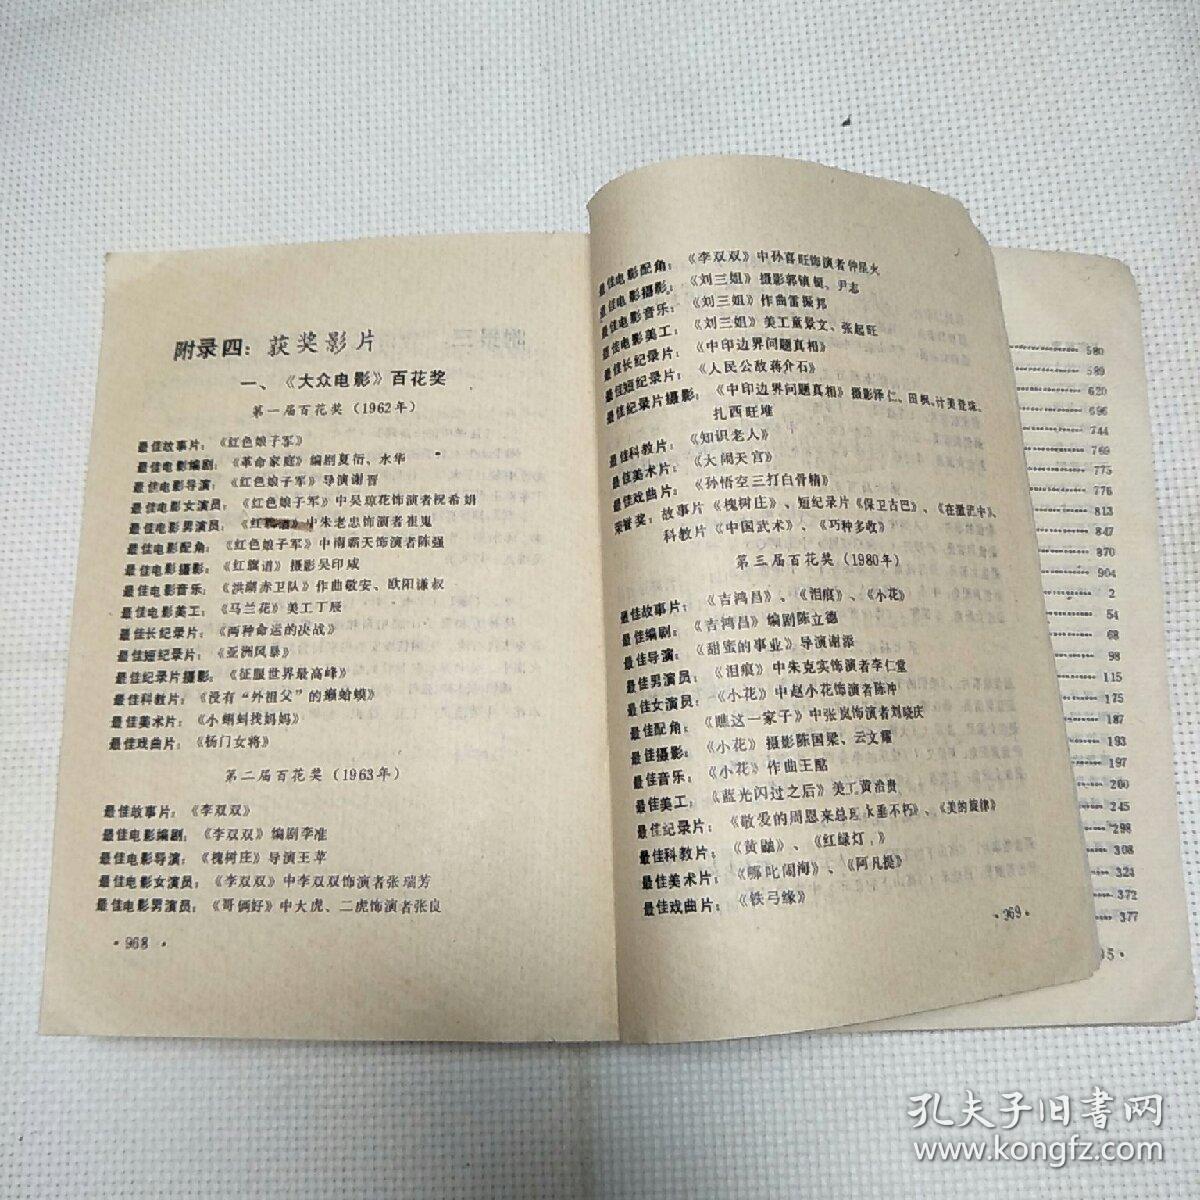 附录四：获奖影片
一、《大众电影》百花奖
第一届百花奖（1962年）
最佳故事片：《红色娘子军》
最佳电影编剧：《革命家庭》编剧夏衍、水华
最佳电影导演：《红色娘子军》导演谢晋
最佳电影女演员：《红色娘子军》中吴琼花饰演者祝希娟
最佳电影男演员：《红旗谱》中朱老忠饰演者崔嵬
最佳电影配角：《红色娘子军》中南霸天饰演者陈强
最佳电影摄影：《红旗谱》摄影吴印咸
最佳电影音乐：《洪湖赤卫队》作曲敬安、欧阳谦叔
最佳电影美工：《马兰花》美工丁辰
最佳长纪录片：《两种命运的决战》
最佳短纪录片：《亚洲风暴》
最佳纪录片摄影：《征服世界最高峰》
最佳科教片：《没有“外祖父”的癞蛤蟆》
最佳美术片：《小蝌蚪找妈妈》
最佳戏曲片：《杨门女将》
第二届百花奖（1963年）
最佳故事片：《李双双》
最佳电影编剧：《李双双》编剧李准
最佳电影导演：《槐树庄》导演王苹
最佳电影女演员：《李双双》中李双双饰演者张瑞芳
最佳电影男演员：《哥俩好》中大虎、二虎饰演者张良
·968·
最佳电影配角：《李双双》中孙喜旺饰演者仲星火
最佳电影摄影：《刘三姐》摄影郭镇铤、尹志
最佳电影音乐：《刘三姐》作曲雷振邦
最佳电影美工：《刘三姐》美工童景文、张起旺
最佳长纪录片：《中印边界问题真相》
最佳短纪录片：《人民公敌蒋介石》
最佳纪录片摄影：《中印边界问题真相》摄影泽仁、田枫、计美登珠、
扎西旺堆
最佳科教片：《知识老人》
最佳美术片：《大闹天宫》
最佳戏曲片：《孙悟空三打白骨精》
荣誉奖：故事片《槐树庄》、短纪录片《保卫古巴》、《在激流中》
科教片《中国武术》、《巧种多收》
第三届百花奖（1980年）
最佳故事片：《吉鸿昌》、《泪痕》、《小花》
最佳编剧：《吉鸿昌》编剧陈立德
最佳导演：《甜蜜的事业》导演谢添
最佳男演员：《泪痕》中朱克实饰演者李仁堂
最佳女演员：《小花》中赵小花饰演者陈冲
最佳配角：《瞧这一家子》中张岚饰演者刘晓庆
最佳摄影：《小花》摄影陈国梁、云文耀
最佳音乐：《小花》作曲王酩
最佳美工：《蓝光闪过之后》美工黄治贵
最佳纪录片：《敬爱的周恩来总理永垂不朽》、《美的旋律》
最佳科教片：《黄鼬》、《红绿灯》
最佳美术片：《哪吒闹海》、《阿凡提》
最佳戏曲片：《铁弓缘》
·969·
580
589
620
696
744
769
775
776
813
847
870
904
2
54
68
98
115
175
187
193
197
200
245
298
308
323
372
377
孔夫子旧书网
www.kongfz.com